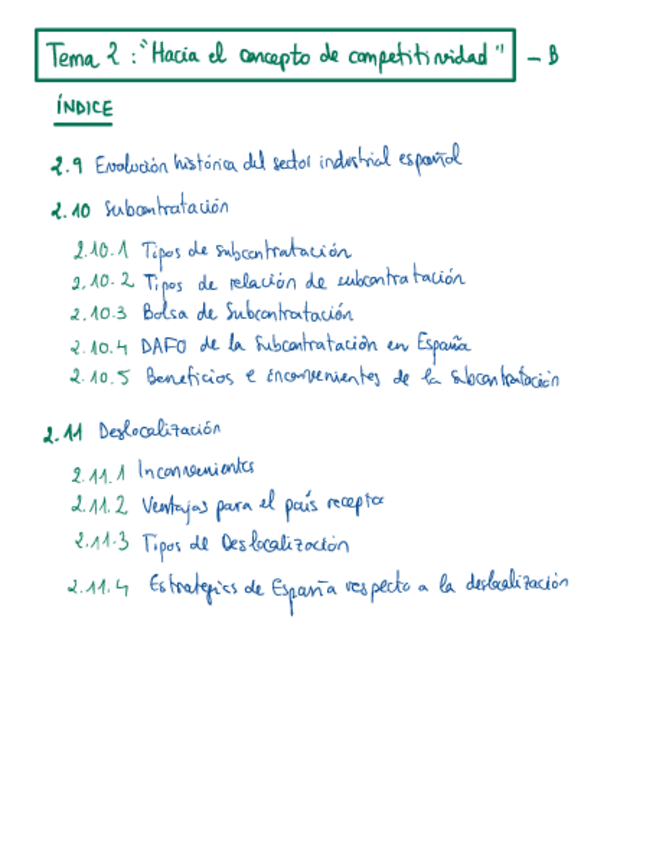 Tema 2 : "Hacia el concepto de competitividad" - B
ÍNDICE
2.9 Evolución histórica del sector industrial español
2.10 Subcontratación
2.10.1 Tipos de subcontratación
2.10.2 Tipos de relación de subcontratación
2.10.3 Bolsa de Subcontratación
2.10.4 DAFO de la Subcontratación en España
2.10.5 Beneficios e inconvenientes de la subcontratación
2.11 Deslocalización
2.11.1 Inconvenientes
2.11.2 Ventajas para el país receptor
2.11.3 Tipos de Deslocalización
2.11.4 Estrategias de España respecto a la deslocalización